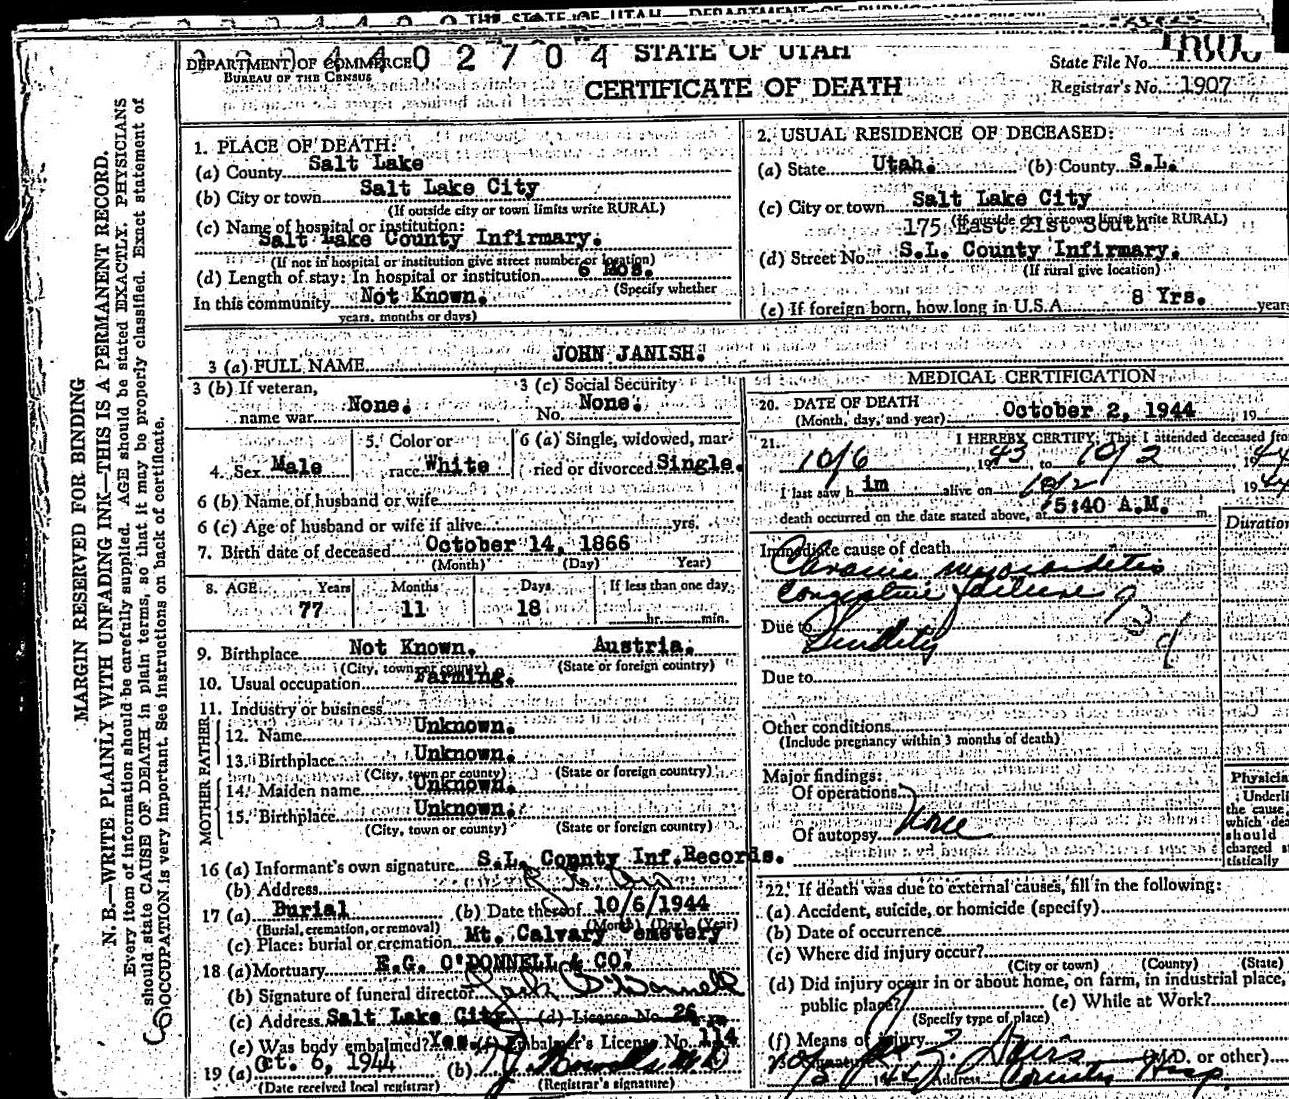 THE STATE OF UTAH - DEPARTMENT OF
DEPARTMENT OF COMMERCE
BUREAU OF THE CENSUS
4402704
STATE OF UTAH
CERTIFICATE OF DEATH
State File No.
Registrar's No. 1907
MARGIN RESERVED FOR BINDING
N. B.—WRITE PLAINLY WITH UNFADING INK—THIS IS A PERMANENT RECORD.
Every item of information should be carefully supplied. AGE should be stated EXACTLY. PHYSICIANS
should state CAUSE OF DEATH in plain terms, so that it may be properly classified. Exact statement of
OCCUPATION is very important. See instructions on back of certificate.
1. PLACE OF DEATH:
(a) County Salt Lake
(b) City or town Salt Lake City
(If outside city or town limits write RURAL)
(c) Name of hospital or institution:
Salt Lake County Infirmary.
(If not in hospital or institution give street number or location)
(d) Length of stay: In hospital or institution 6 Mos.
(Specify whether
In this community Not Known.
years, months or days)
2. USUAL RESIDENCE OF DECEASED:
(a) State Utah. (b) County S.L.
(c) City or town Salt Lake City
(If outside city or town limits write RURAL)
175 East 21st South
(d) Street No. S.L. County Infirmary.
(If rural give location)
(e) If foreign born, how long in U.S.A. 8 Yrs. years
3 (a) FULL NAME JOHN JANISH.
3 (b) If veteran,
name war None.
3 (c) Social Security
No. None.
4. Sex Male
5. Color or
race White
6 (a) Single, widowed, mar-
ried or divorced Single.
6 (b) Name of husband or wife
6 (c) Age of husband or wife if alive yrs.
7. Birth date of deceased October 14, 1866
(Month) (Day) Year)
8. AGE Years Months Days If less than one day
77 11 18 hr. min.
9. Birthplace Not Known. Austria.
(City, town or county) (State or foreign country)
10. Usual occupation Farming.
11. Industry or business
FATHER
12. Name Unknown.
13. Birthplace Unknown.
(City, town or county) (State or foreign country)
MOTHER
14. Maiden name Unknown.
15. Birthplace Unknown.
(City, town or county) (State or foreign country)
16 (a) Informant's own signature S.L. County Inf. Records.
(b) Address
17 (a) Burial (b) Date thereof 10/6/1944
(Burial, cremation, or removal) (Month) (Day) (Year)
(c) Place: burial or cremation Mt. Calvary Cemetery
18 (a) Mortuary E.G. O'DONNELL & CO.
(b) Signature of funeral director Jack O'Donnell
(c) Address Salt Lake City (d) License No. 26
(e) Was body embalmed? Yes. (f) Embalmer's License No. 114
19 (a) Oct. 6, 1944 (b)
(Date received local registrar) (Registrar's signature)
MEDICAL CERTIFICATION
20. DATE OF DEATH
(Month, day, and year) October 2, 1944 19
21. I HEREBY CERTIFY, That I attended deceased from
10/6, 1943, to 10/2, 1944
I last saw him alive on 10/2 1944
death occurred on the date stated above, at 5:40 A.M. m.
Duration
Immediate cause of death
Chronic myocarditis
Congestive failure
Due to Senility
Due to
Other conditions
(Include pregnancy within 3 months of death)
Major findings:
Of operations
Of autopsy None
Physicia
Underli
the cause
which dea
should
charged s
tistically
22. If death was due to external causes, fill in the following:
(a) Accident, suicide, or homicide (specify)
(b) Date of occurrence
(c) Where did injury occur?
(City or town) (County) (State)
(d) Did injury occur in or about home, on farm, in industrial place,
public place? (e) While at Work?
(Specify type of place)
(f) Means of injury
Davis (M.D. or other)
Address County Hosp.